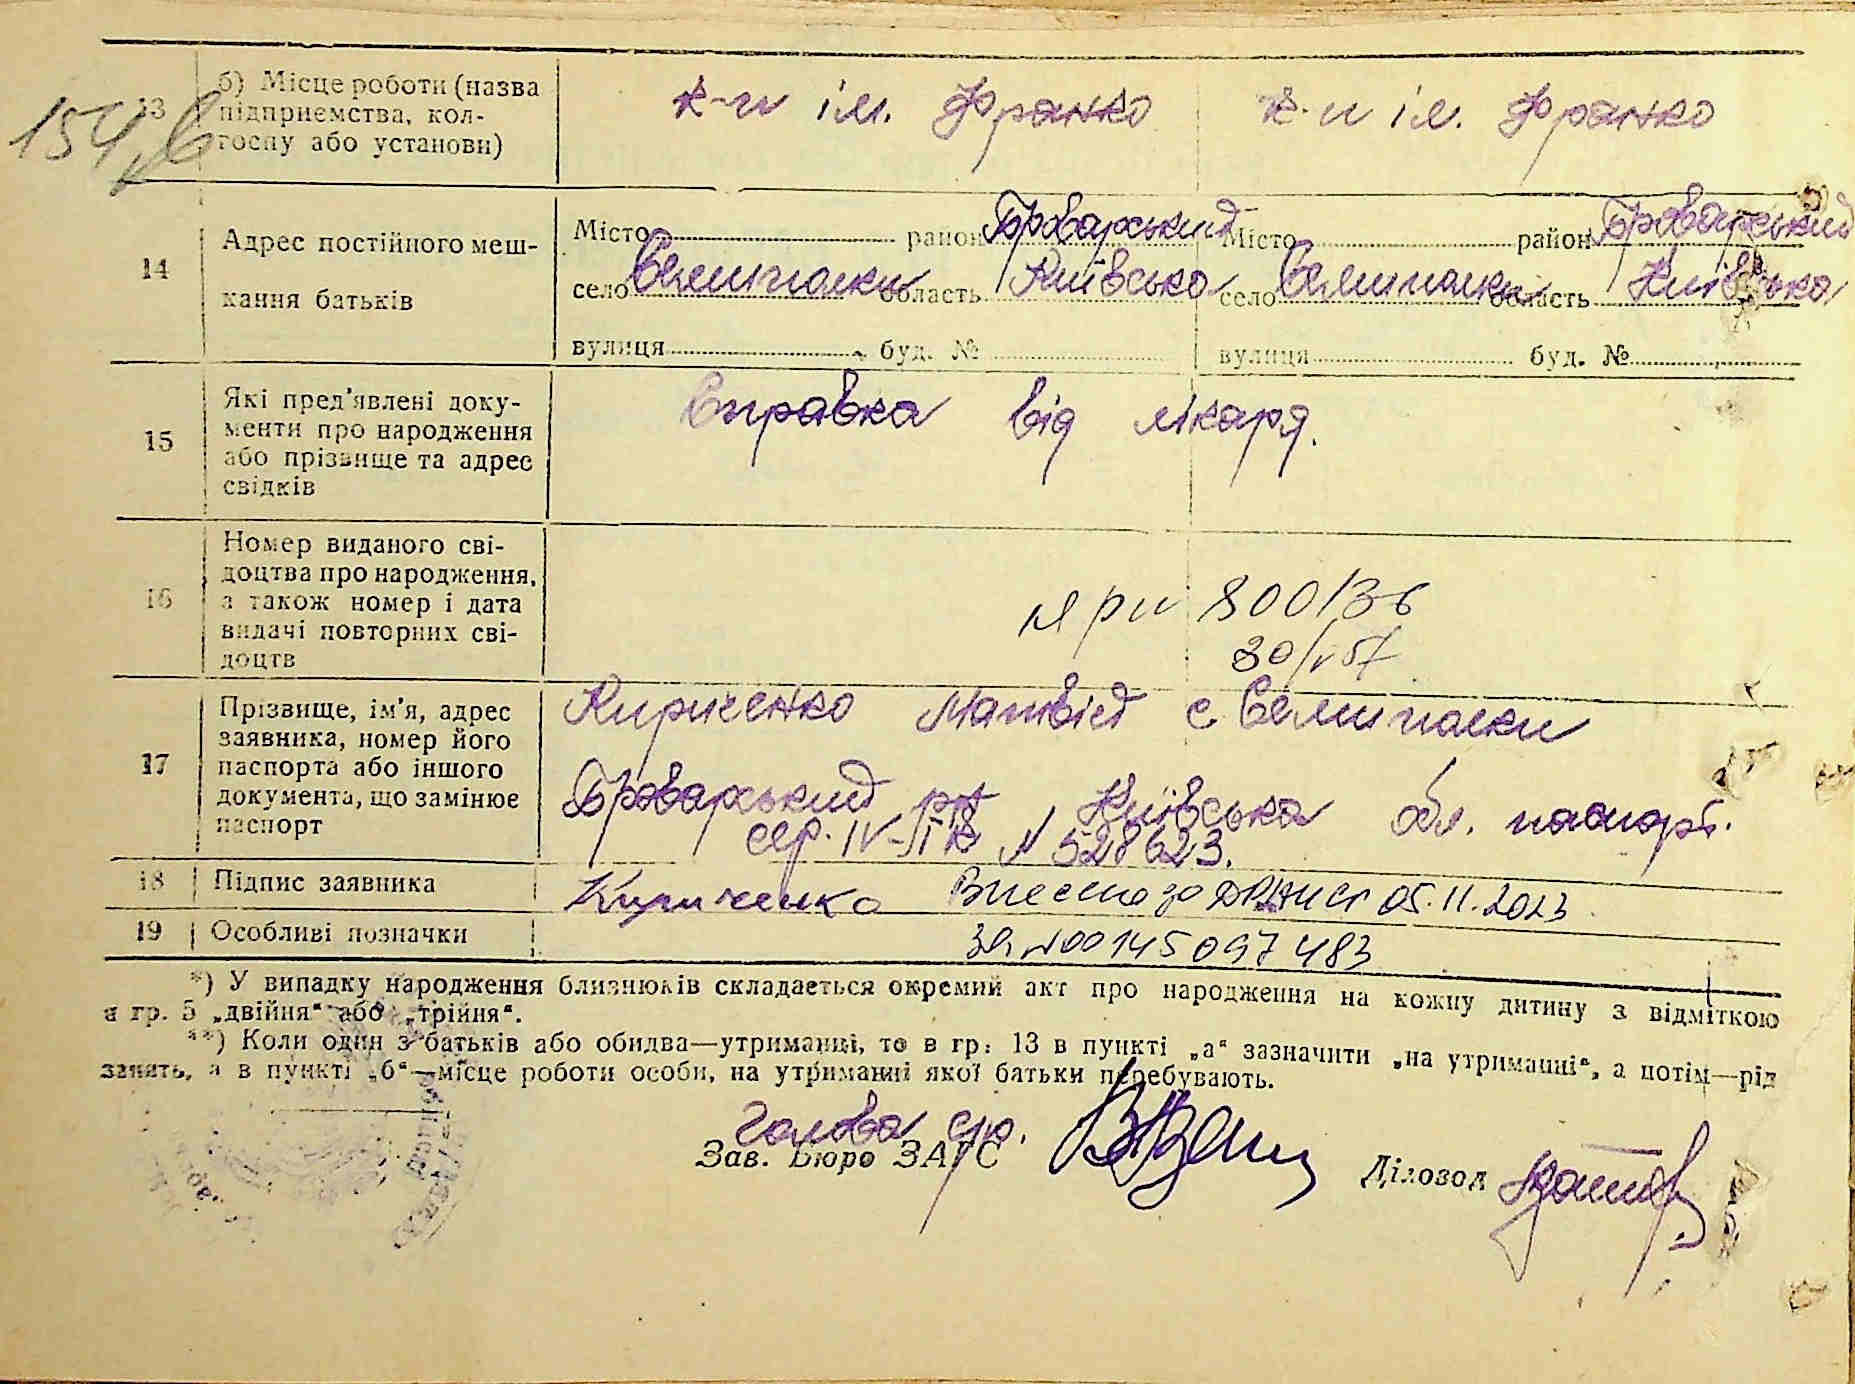 154
13 б) Місце роботи (назва підприємства, колгоспу або установи) к-п ім. Франко к-п ім. Франко
14 Адрес постійного мешкання батьків
Місто район Броварський Місто район Броварський
село Семиполки область Київська село Семиполки область Київська
вулиця буд. № вулиця буд. №
15 Які пред'явлені документи про народження або прізвище та адрес свідків Справка від лікаря.
16 Номер виданого свідоцтва про народження, а також номер і дата видачі повторних свідоцтв
800136
30/V 57
17 Прізвище, ім'я, адрес заявника, номер його паспорта або іншого документа, що замінює паспорт
Кириченко Матвій с Семиполки
Броварський р-н Київська обл. паспорт.
сер. IV-ТК N 528623.
18 Підпис заявника Кириченко Внесено до ДРАЦСГ 05.11.2023
19 Особливі позначки за №00145097483
*) У випадку народження близнюків складається окремий акт про народження на кожну дитину з відміткою
в гр. 5 „двійня“ або „трійня“.
**) Коли один з батьків або обидва—утриманці, то в гр. 13 в пункті „а“ зазначити „на утриманні“, а потім—рід
занять, а в пункті „б“—місце роботи особи, на утриманні якої батьки перебувають.
Голова с/р.
Зав. Бюро ЗАГС Діловод